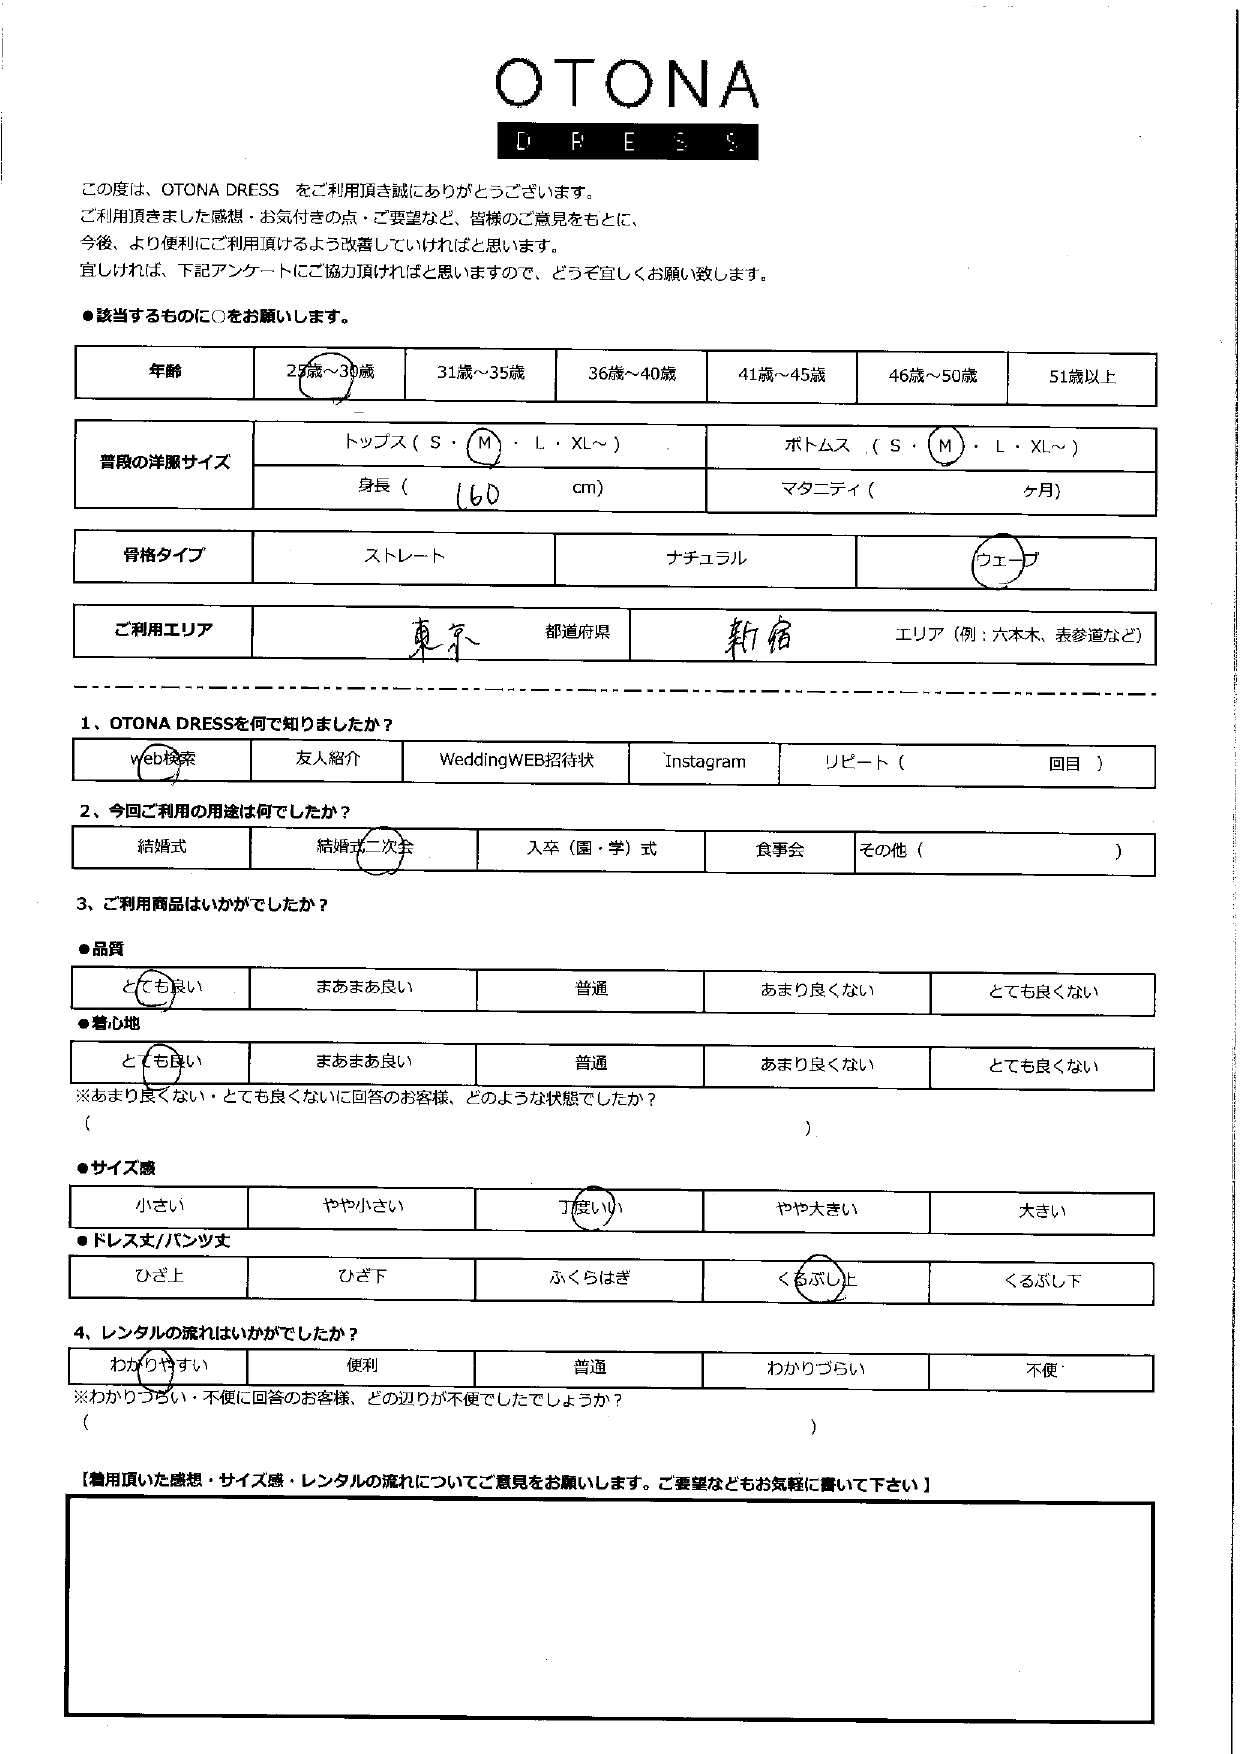 OTONA
DRESS
この度は、OTONA DRESS　をご利用頂き誠にありがとうございます。
ご利用頂きました感想・お気付きの点・ご要望など、皆様のご意見をもとに、
今後、より便利にご利用頂けるよう改善していければと思います。
宜しければ、下記アンケートにご協力頂ければと思いますので、どうぞ宜しくお願い致します。
●該当するものに○をお願いします。
年齢 25歳～30歳 31歳～35歳 36歳～40歳 41歳～45歳 46歳～50歳 51歳以上
普段の洋服サイズ トップス ( S ・ M ・ L ・ XL～ ) ボトムス ( S ・ M ・ L ・ XL～ )
身長 ( 160 cm) マタニティ ( ヶ月)
骨格タイプ ストレート ナチュラル ウェーブ
ご利用エリア 東京 都道府県 新宿 エリア（例：六本木、表参道など）
1、OTONA DRESSを何で知りましたか？
web検索 友人紹介 WeddingWEB招待状 Instagram リピート ( 回目 )
2、今回ご利用の用途は何でしたか？
結婚式 結婚式二次会 入卒（園・学）式 食事会 その他 ( )
3、ご利用商品はいかがでしたか？
●品質
とても良い まあまあ良い 普通 あまり良くない とても良くない
●着心地
とても良い まあまあ良い 普通 あまり良くない とても良くない
※あまり良くない・とても良くないに回答のお客様、どのような状態でしたか？
( )
●サイズ感
小さい やや小さい 丁度いい やや大きい 大きい
●ドレス丈/パンツ丈
ひざ上 ひざ下 ふくらはぎ くるぶし上 くるぶし下
4、レンタルの流れはいかがでしたか？
わかりやすい 便利 普通 わかりづらい 不便
※わかりづらい・不便に回答のお客様、どの辺りが不便でしたでしょうか？
( )
【着用頂いた感想・サイズ感・レンタルの流れについてご意見をお願いします。ご要望などもお気軽に書いて下さい】